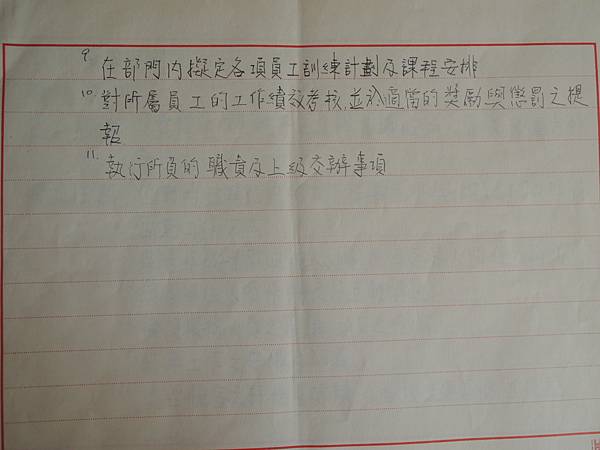 9. 在部門內擬定各項員工訓練計劃及課程安排
10. 對所屬員工的工作績效考核,並於適當的獎勵與懲罰之提
報
11. 執行所負的職責及上級交辦事項